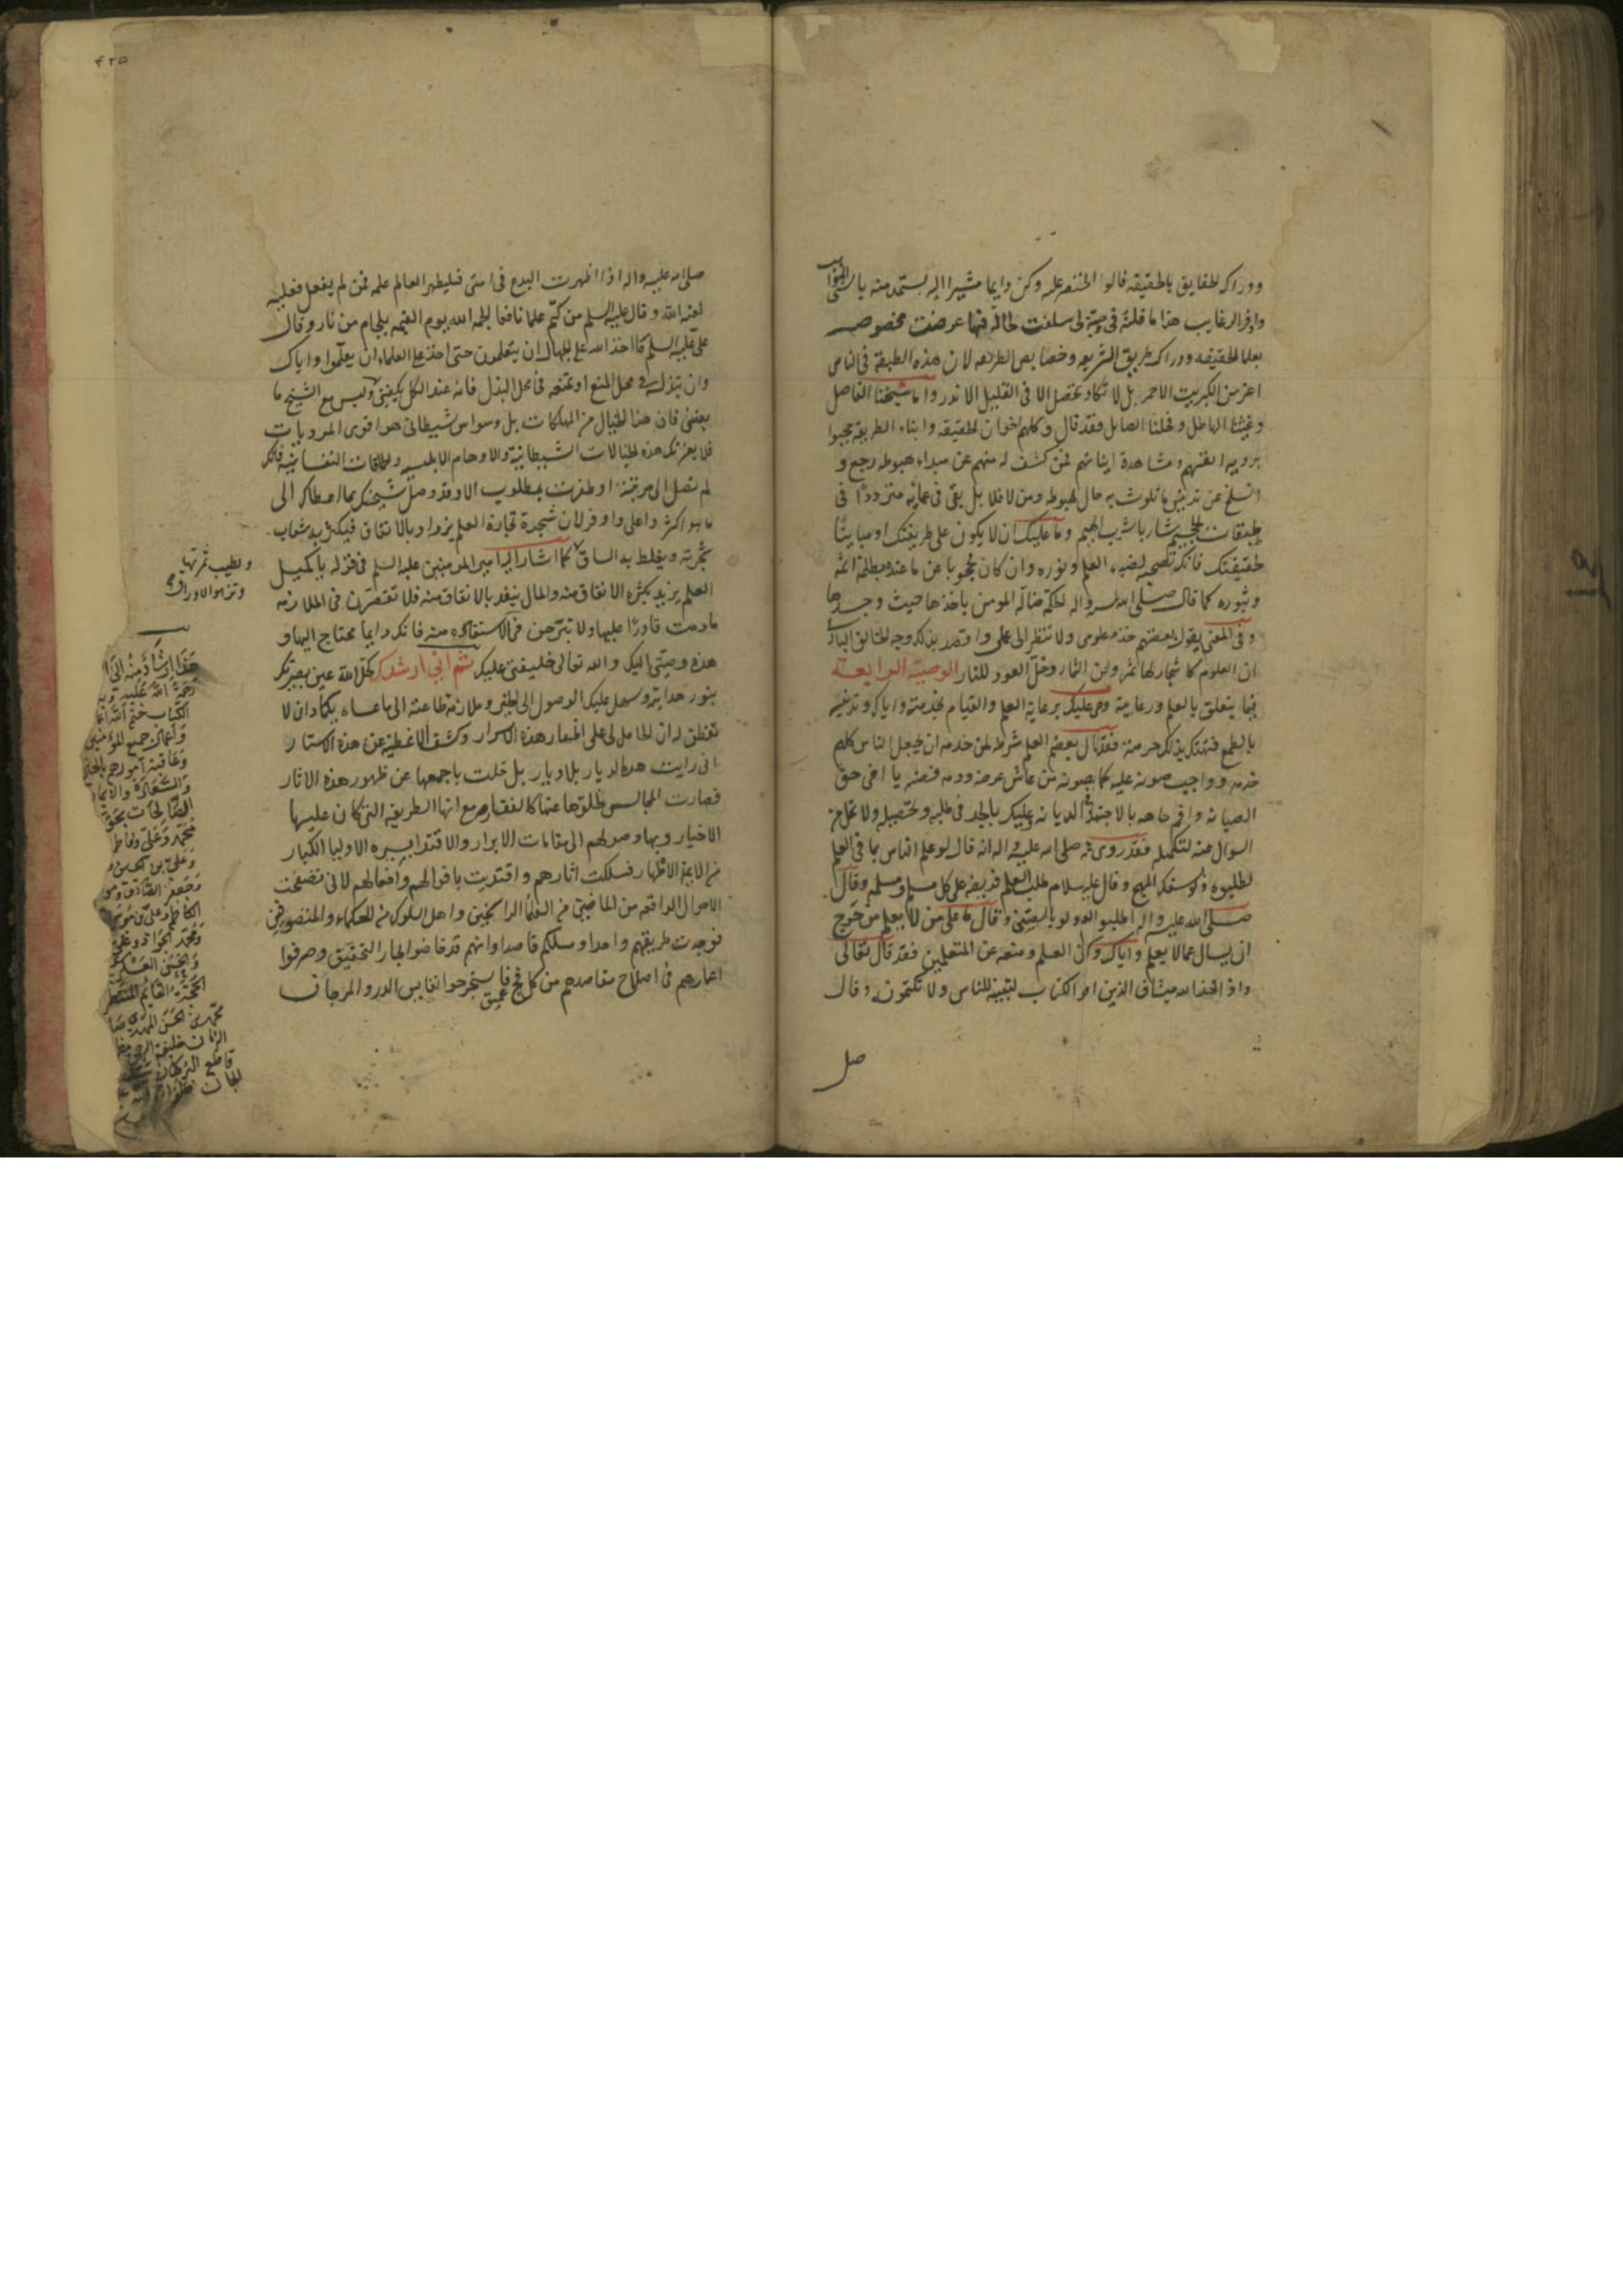 ودراك لحقايق بالحقيقة فالو الخنصر عليه وكن دايما مشيرا اليه يستمد منه باسنى المواهب
وافر الرغايب هذا ما قلته في وصية لى سلفت طافه فيها عرضت مخصوص
بعلما الحقيقه ودراك طريق الشريعه وخصايص الطريقه لان هذه الطبقة في الناس
اعز من الكبريت الاحمر بل لا تكاد تحصل الا في القليل الاندر واما شيخنا الفاضل
وغيثنا الهاطل وفحلنا الصايل فقد قال وكلهم اخوان الحقيقه وابناء الطريقة محبوا
بروية انفسهم ومشاهدة اينياتهم فمن كشف له منهم عن مبداء هبوطه رجع و
انسلخ عن تدنيس ما تلوث به حال هبوطه ومن لا فلا بل بقى في عمايه مترددا في
طبقات الجحيم شاربا شرب الهيم وما عليك ان لا يكون على طريقتك او مباينا
لحقيقتك فانك تصحبه لضيا العلم ونوره وان كان محجوبا عن ما عنده بظلمة انه
وثبوره كما قال صلى الله عليه واله الحكمة ضالة المومن ياخذها حيث وجدها
وفي المعنى يقول بعضهم خذ من علومى ولا تنظر الى عملى واقصد بذلك وجه الخالق البارى
ان العلوم كاشجار لها ثمر واجن الثمار وخل العود للنار الوصية الرابعة
فيما يتعلق بالعلم ورعايته وهى عليك برعاية العلم والقيام بخدمته واياك وتدنيسه
بالطمع فتهتك بذلك حرمته فقد قال بعضهم العلم شرط لمن خدمه ان يجعل الناس كلهم
خدمه وواجب صونه عليه كما يصون من عاش عرضه ودمه فصنه يا اخى حق
الصيانه واقم جاهه بالاجتهاد والديانه وعليك بالجد في طلبه وتحصيله ولا تخل من
السوال عنه لتكمله فقد روى عنه صلى الله عليه واله انه قال لو علم الناس ما في العلم
لطلبوه ولو بسفك المهج وقال عليه السلام طلب العلم فريضه على كل مسلم ومسلمه وقال
صلى الله عليه واله اطلبوا العلم ولو بالصين وقال ما على من لا يعلم من حرج
ان يسال عما لا يعلم واياك وكتم العلم ومنعه عن المتعلمين فقد قال تعالى
واذ اخذ الله ميثاق الذين اوتوا الكتاب لتبيننه للناس ولا تكتمونه وقال
صل
٤٢٥
صلى الله عليه واله اذا ظهرت البدع في امتى فليظهر العالم علمه فمن لم يفعل فعليه
لعنة الله وقال عليه السلم من كتم علما نافعا الجمه الله يوم القيمه بلجام من نار وقال
على عليه السلم ما اخذ الله على الجهال ان يتعلمون حتى اخذ على العلماء ان يعلموا واياك
وان تبذله في محل المنع او تمنعه في محل البذل فانه عند الكل يكفينى وليس مع الشيخ ما
يعنى فان هذا الخيال من المهلكات بل وسواس شيطانى هو اقوى المرديات
فلا يغرنك هذه الخيالات الشيطانية والاوهام الابليسيه والحماقات النفسانيه فانك
لم تصل الى مرتبة او ظفرت بمطلوب الا وقد وصل شيخك بما اعطاك الى
ما هو اكثر واعلى واوفر لان شجرة تجارة العلم يزداد بالانفاق فيكثر به شعاب
شجرته ويغلظ به الساق كما اشار اليه امير المومنين عليه السلم في قوله يا كميل
العلم يزيد بكثرة الانفاق منه والمال ينفد بالانفاق منه فلا تقتصرن في الملازمه
ما دمت قادرا عليها ولا تبرحن في الاستفاده منه فانك دايما محتاج اليها و
هذه وصيتى اليك والله تعالى خليفتى عليك ثم انى ارشدك كحل الله عين بصيرتك
بنور هدايته وسهل عليك الوصول الى الجنى وملازمة طاعته الى ما عساه بكما وان لا
تفطن له ان الحامل لى على اظهار هذه الاسرار وكشف الاغطية عن هذه الاستار
انى رايت هذه الديار بلاديار بل خلت باجمعها عن ظهور هذه الاثار
فصارت المجالس لخلوها عنها كالقفار مع انها الطريقه التى كان عليها
الاخيار وبها وصولهم الى مقامات الابرار والاقتدا بسيره الاوليا الكبار
من الايمة الاطهار فسلكت اثارهم واقتديت باقوالهم وافعالهم لانى تصفحت
الاحوال الواقعه من الماضين من العلما الراسخين واهل السلوك من الحكماء والمتصوفين
فوجدت طريقهم واحدا ومسلكهم قاصدا وانهم قد خاضوا بحار التحقيق وصرفوا
اعمارهم في اصلاح مقاصدهم من كل فج عميق فاستخرجوا نفايس الدرر والمرجان
ويطيب ثمرتها
وتزهو الاوراق
رحمة الله عليه
الكتاب ختم الله
واعمال جميع المؤمنين
وعاقبة امورهم بالجنان
والسعادة
الصالحات بحق
محمد وعلى وفاطمة
وعلى بن الحسين
وجعفر الصادق وموسى
الكاظم وعلى بن موسى
ومحمد الجواد وعلى
والحسن العسكرى
الحجة القائم المنتظر
محمد بن الحسن المهدى صاحب
الزمان خليفة الرحمن
قاطع البرهان